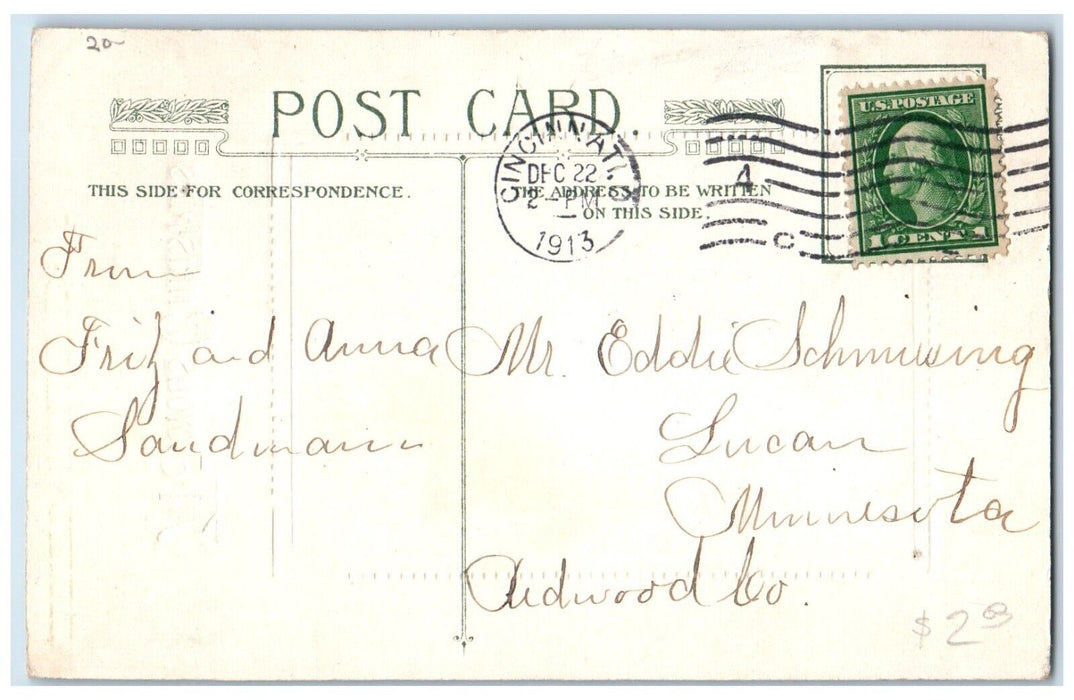 20-
POST CARD.
THIS SIDE FOR CORRESPONDENCE.
THE ADDRESS TO BE WRITTEN
ON THIS SIDE.
CINCINNATI, O
DEC 22
2-PM
1913
A
C
U.S. POSTAGE
1 CENT 1
From
Fritz and Anna
Sandmann
Mr. Eddie Schmiesing
Lucan
Minnesota
Redwood Co.
$2